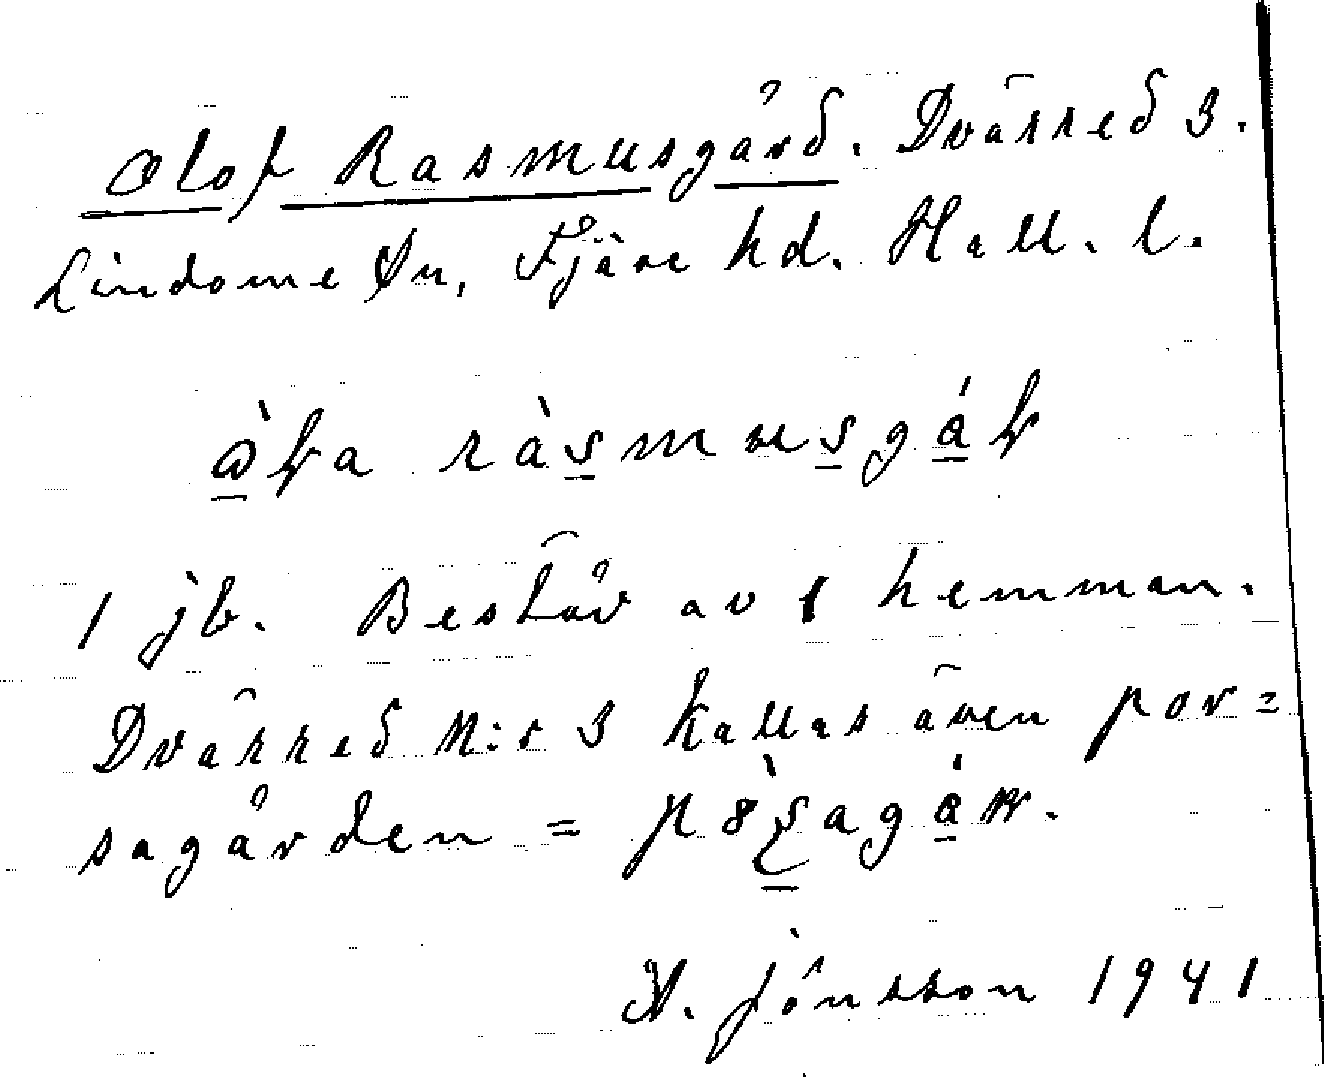 Olof Rasmusgård. Dvärred 3.
Lindome sn, Fjäre hd. Hall. l.
1 jb. Består av 1 hemman.
Dvärred N:r 3 kallas även por=
sagården =
A. Jönsson 1941